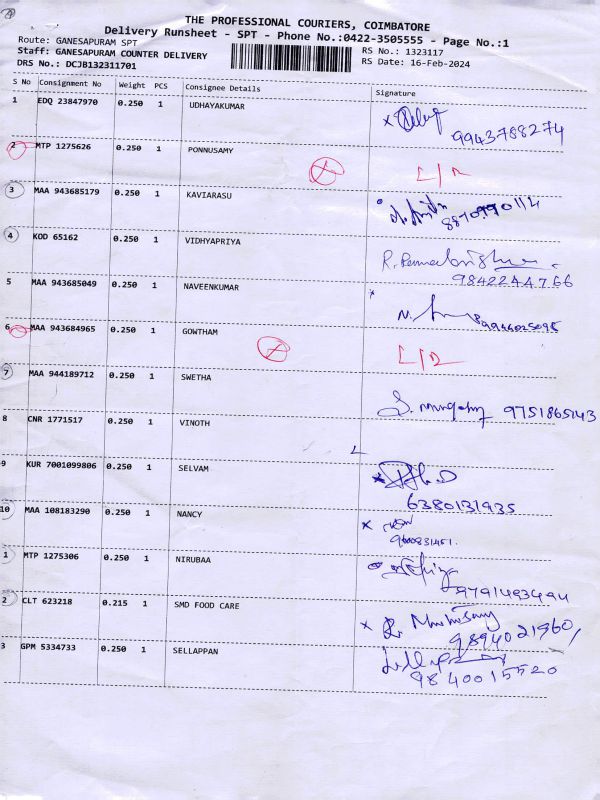 THE PROFESSIONAL COURIERS, COIMBATORE
Delivery Runsheet - SPT - Phone No.:0422-3505555 - Page No.:1
Route: GANESAPURAM SPT
RS No.: 1323117
Staff: GANESAPURAM COUNTER DELIVERY
RS Date: 16-Feb-2024
DRS No.: DCJB132311701
S No Consignment No Weight PCS Consignee Details Signature
1 EDQ 23847970 0.250 1 UDHAYAKUMAR
9943788274
2 MTP 1275626 0.250 1 PONNUSAMY
L/R
3 MAA 943685179 0.250 1 KAVIARASU
4 KOD 65162 0.250 1 VIDHYAPRIYA
9842244766
5 MAA 943685049 0.250 1 NAVEENKUMAR
6 MAA 943684965 0.250 1 GOWTHAM
L/R
7 MAA 944189712 0.250 1 SWETHA
9751865143
8 CNR 1771517 0.250 1 VINOTH
9 KUR 7001099806 0.250 1 SELVAM
6380131935
10 MAA 108183290 0.250 1 NANCY
9600831451.
1 MTP 1275306 0.250 1 NIRUBAA
9791493494
2 CLT 623218 0.215 1 SMD FOOD CARE
9894021960/
3 GPM 5334733 0.250 1 SELLAPPAN
9840015520